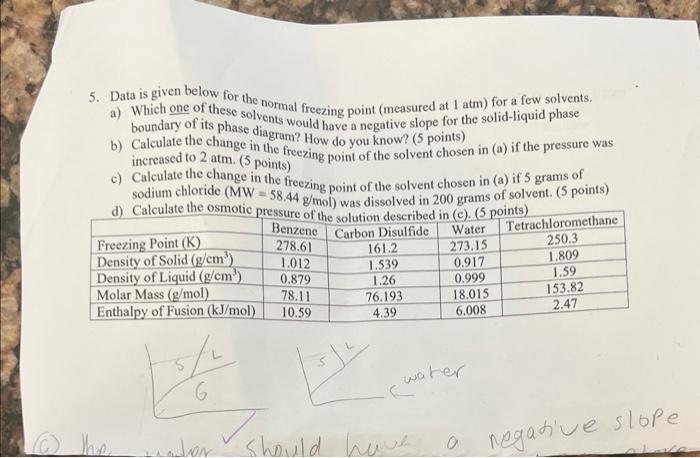 5. Data is given below for the normal freezing point (measured at 1 atm) for a few solvents.
a) Which one of these solvents would have a negative slope for the solid-liquid phase
boundary of its phase diagram? How do you know? (5 points)
b) Calculate the change in the freezing point of the solvent chosen in (a) if the pressure was
increased to 2 atm. (5 points)
c) Calculate the change in the freezing point of the solvent chosen in (a) if 5 grams of
sodium chloride (MW = 58.44 g/mol) was dissolved in 200 grams of solvent. (5 points)
d) Calculate the osmotic pressure of the solution described in (c). (5 points)
Benzene Carbon Disulfide Water Tetrachloromethane
Freezing Point (K) 278.61 161.2 273.15 250.3
Density of Solid (g/cm³) 1.012 1.539 0.917 1.809
Density of Liquid (g/cm³) 0.879 1.26 0.999 1.59
Molar Mass (g/mol) 78.11 76.193 18.015 153.82
Enthalpy of Fusion (kJ/mol) 10.59 4.39 6.008 2.47
S L S L
G water
the should have a negative slope